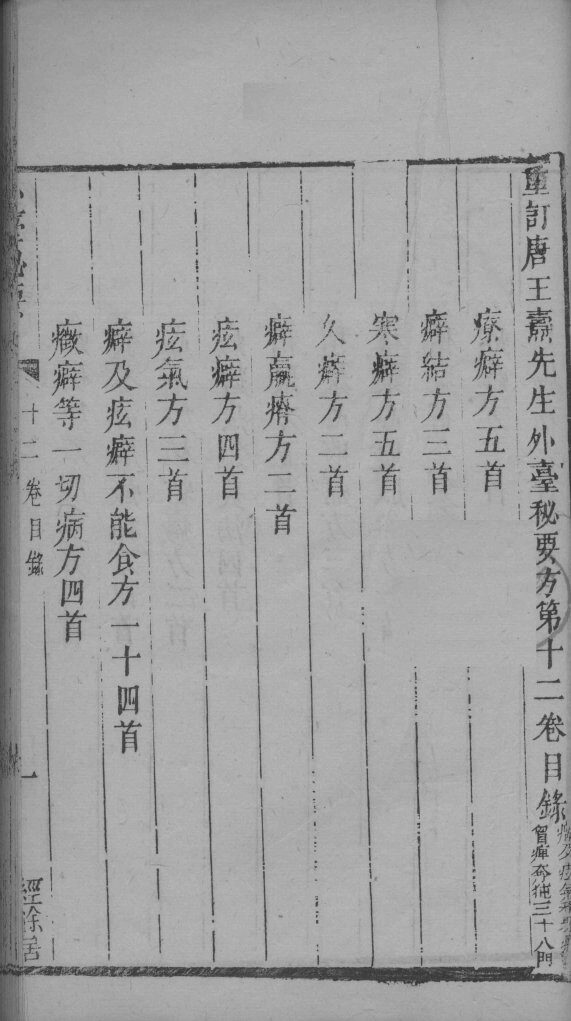 重訂唐王燾先生外臺秘要方第十二卷目錄
胷痺奔㹠三十八門
療癖方五首
癖結方三首
寒癖方五首
久癖方二首
癖羸瘠方二首
痃癖方四首
痃氣方三首
癖及痃癖不能食方一十四首
癥癖等一切病方四首
十二卷目錄
一
經餘居